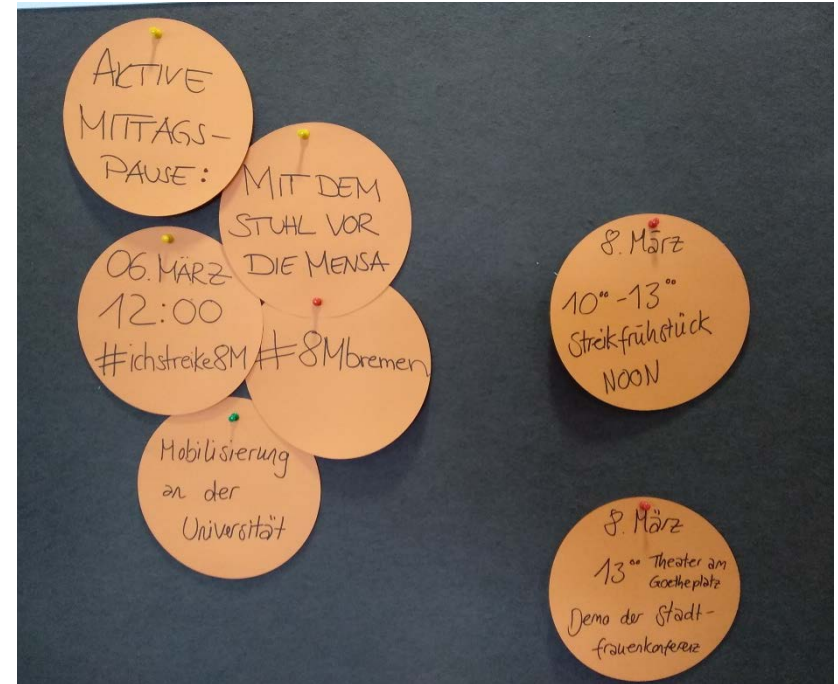 AKTIVE
MITTAGS-
PAUSE:
MIT DEM
STUHL VOR
DIE MENSA
06. MÄRZ
12:00
#ichstreike8M
#8Mbremen
Mobilisierung
an der
Universität
8. März
10°° - 13°°
Streikfrühstück
NOON
8. März
13°° Theater am
Goetheplatz
Demo der Stadt-
frauenkonferenz